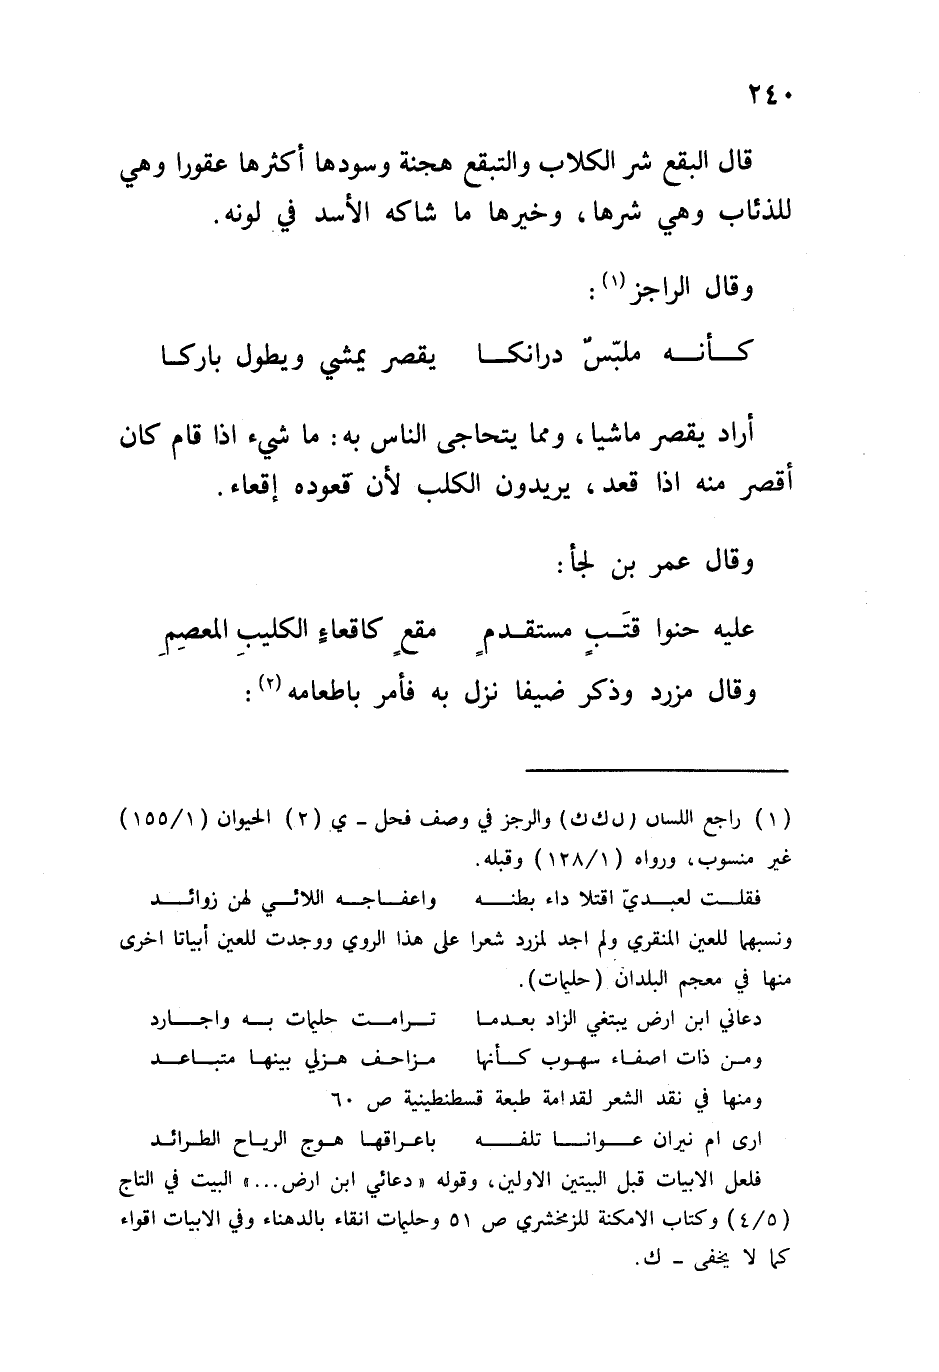 ٢٤٠
قال البقع شر الكلاب والتبقع هجنة وسودها أكثرها عقورا وهي
للذئاب وهي شرها، وخيرها ما شاكه الأسد في لونه.
وقال الراجز(١):
كـــأنـــه ملبّسٌ درانكـــا يقصر يمشي ويطول باركـا
أراد يقصر ماشيا، ومما يتحاجى الناس به: ما شيء اذا قام كان
أقصر منه اذا قعد، يريدون الكلب لأن قعوده إقعاء.
وقال عمر بن لجأ:
عليه حنوا قتَـــبٍ مستقـدمٍ مقعٍ كاقعاءِ الكليبِ المعصِمِ
وقال مزرد وذكر ضيفا نزل به فأمر باطعامه(٢):
(١) راجع اللسان (ل ك ك) والرجز في وصف فحل - ي (٢) الحيوان (١/١٥٥)
غير منسوب، ورواه (١/١٢٨) وقبله.
فقلـــت لعبـــديّ اقتلا داء بطنـــه واعفـــاجـــه اللائـــي لهن زوائـــد
ونسبها للعين المنقري ولم اجد لمزرد شعرا على هذا الروي ووجدت للعين أبياتا اخرى
منها في معجم البلدان (حليات).
دعاني ابن ارض يبتغي الزاد بعـدمـا تـــرامـــت حليات بـــه واجـــارد
ومـن ذات اصفـاء سهـوب كـأنها مـزاحـف هـزلي بينهـا متبـــاعـــد
ومنها في نقد الشعر لقدامة طبعة قسطنطينية ص ٦٠
ارى ام نيران عـــوانـــا تلفـــه باعـراقهـا هـوج الريـاح الطـرائـد
فلعل الابيات قبل البيتين الاولين، وقوله « دعائي ابن ارض...» البيت في التاج
(٤/٥) وكتاب الامكنة للزمخشري ص ٥١ وحليات انقاء بالدهناء وفي الابيات اقواء
كما لا يخفى - ك.